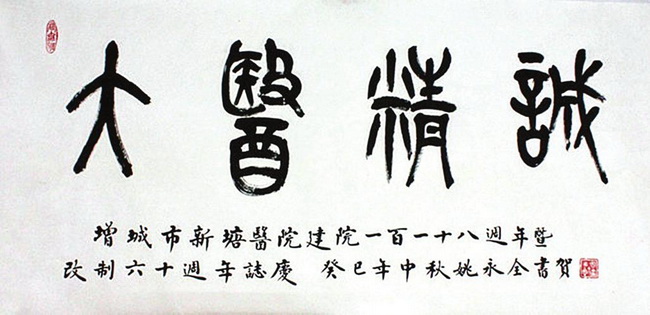 大醫精誠
增城市新塘醫院建院一百一十八週年暨
改制六十週年誌慶 癸巳年中秋姚永全書賀